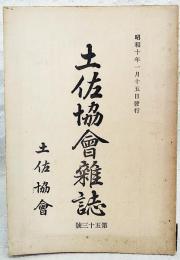 昭和十年一月十五日發行
土佐協會雜誌
號三十五第
土佐協會